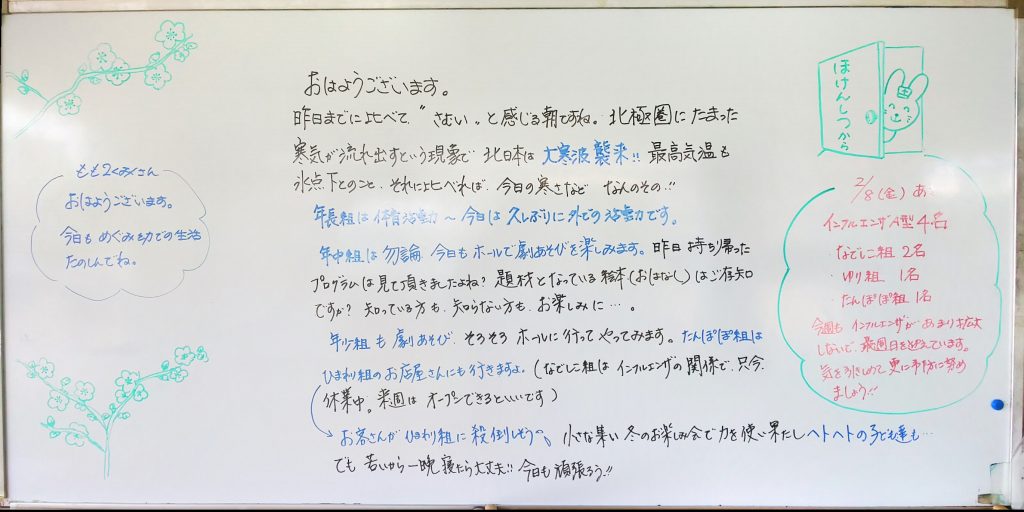 おはようございます。
昨日までに比べて、"さむい。と感じる朝ですね。北極圏にたまった
寒気が流れ出すという現象で 北日本は 大寒波襲来!! 最高気温も
氷点下とのこと、それに比べれば、今日の寒さなど なんのその!!
年長組は 体育活動 〜 今日は 久しぶりに 外での活動です。
年中組は 勿論 今日も ホールで 劇あそびを楽しみます。昨日 持ち帰った
プログラムは 見て頂きましたよね? 題材となっている 絵本(おはなし)はご存知
ですか? 知っている方も、知らない方も、お楽しみに…。
年少組も 劇あそび、そろそろ ホールに行って やってみます。たんぽぽ組は
ひまわり組のお店屋さんにも行きますよ。(なでしこ組は インフルエンザの関係で、只今、
休業中。来週は オープンできるといいです)
お客さんが ひまわり組に 殺倒しそう〜、小さな集い 冬のお楽しみ会で 力を使い果たし ヘトヘトの子ども達も…
でも 若いから 一晩 寝たら大丈夫!! 今日も 頑張ろう!!
もも2くみさん
おはようございます。
今日も めぐみ幼での生活
たのしんでね。
ほけんしつから
2/8(金) あ
インフルエンザA型 4名
・なでしこ組 2名
・ゆり組 1名
・たんぽぽ組 1名
今週も インフルエンザが あまり 広まら
しないで、最週日を迎えています。
気を引きしめて 更に予防に努め
ましょう!!